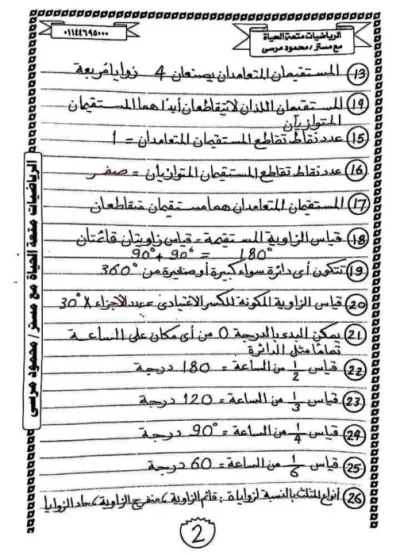 الرياضيات متعة الحياة
مع مستر/محمود مرسى
٠١١٤٤٦٩٥٠٠٠
١٣ المستقيمان المتعامدان يصنعان 4 زوايا مربعة
١٤ المستقيمان اللذان لا يتقاطعان أبدًا هما المستقيمان
المتوازيان
١٥ عدد نقاط تقاطع المستقيمان المتعامدان = 1
١٦ عدد نقاط تقاطع المستقيمان المتوازيان = صفر
١٧ المستقيمان المتعامدان هما مستقيمان متقاطعان
١٨ قياس الزاوية المستقيمة = قياس زاويتان قائمتان
90° + 90° = 180°
١٩ تتكون أى دائرة سواء كبيرة أو صغيرة من 360°
٢٠ قياس الزاوية المكونة للكسر الاعتيادى = عدد الأجزاء X 30°
٢١ يمكن البدء بالدرجة 0 من أى مكان على الساعة
تمامًا مثل الدائرة
٢٢ قياس 1/2 من الساعة = 180 درجة
٢٣ قياس 1/3 من الساعة = 120 درجة
٢٤ قياس 1/4 من الساعة = 90° درجة
٢٥ قياس 1/6 من الساعة = 60 درجة
٢٦ أنواع المثلث بالنسبة لزواياه: قائم الزاوية، منفرج الزاوية، حاد الزوايا
2
الرياضيات متعة الحياة مع مستر / محمود مرسى